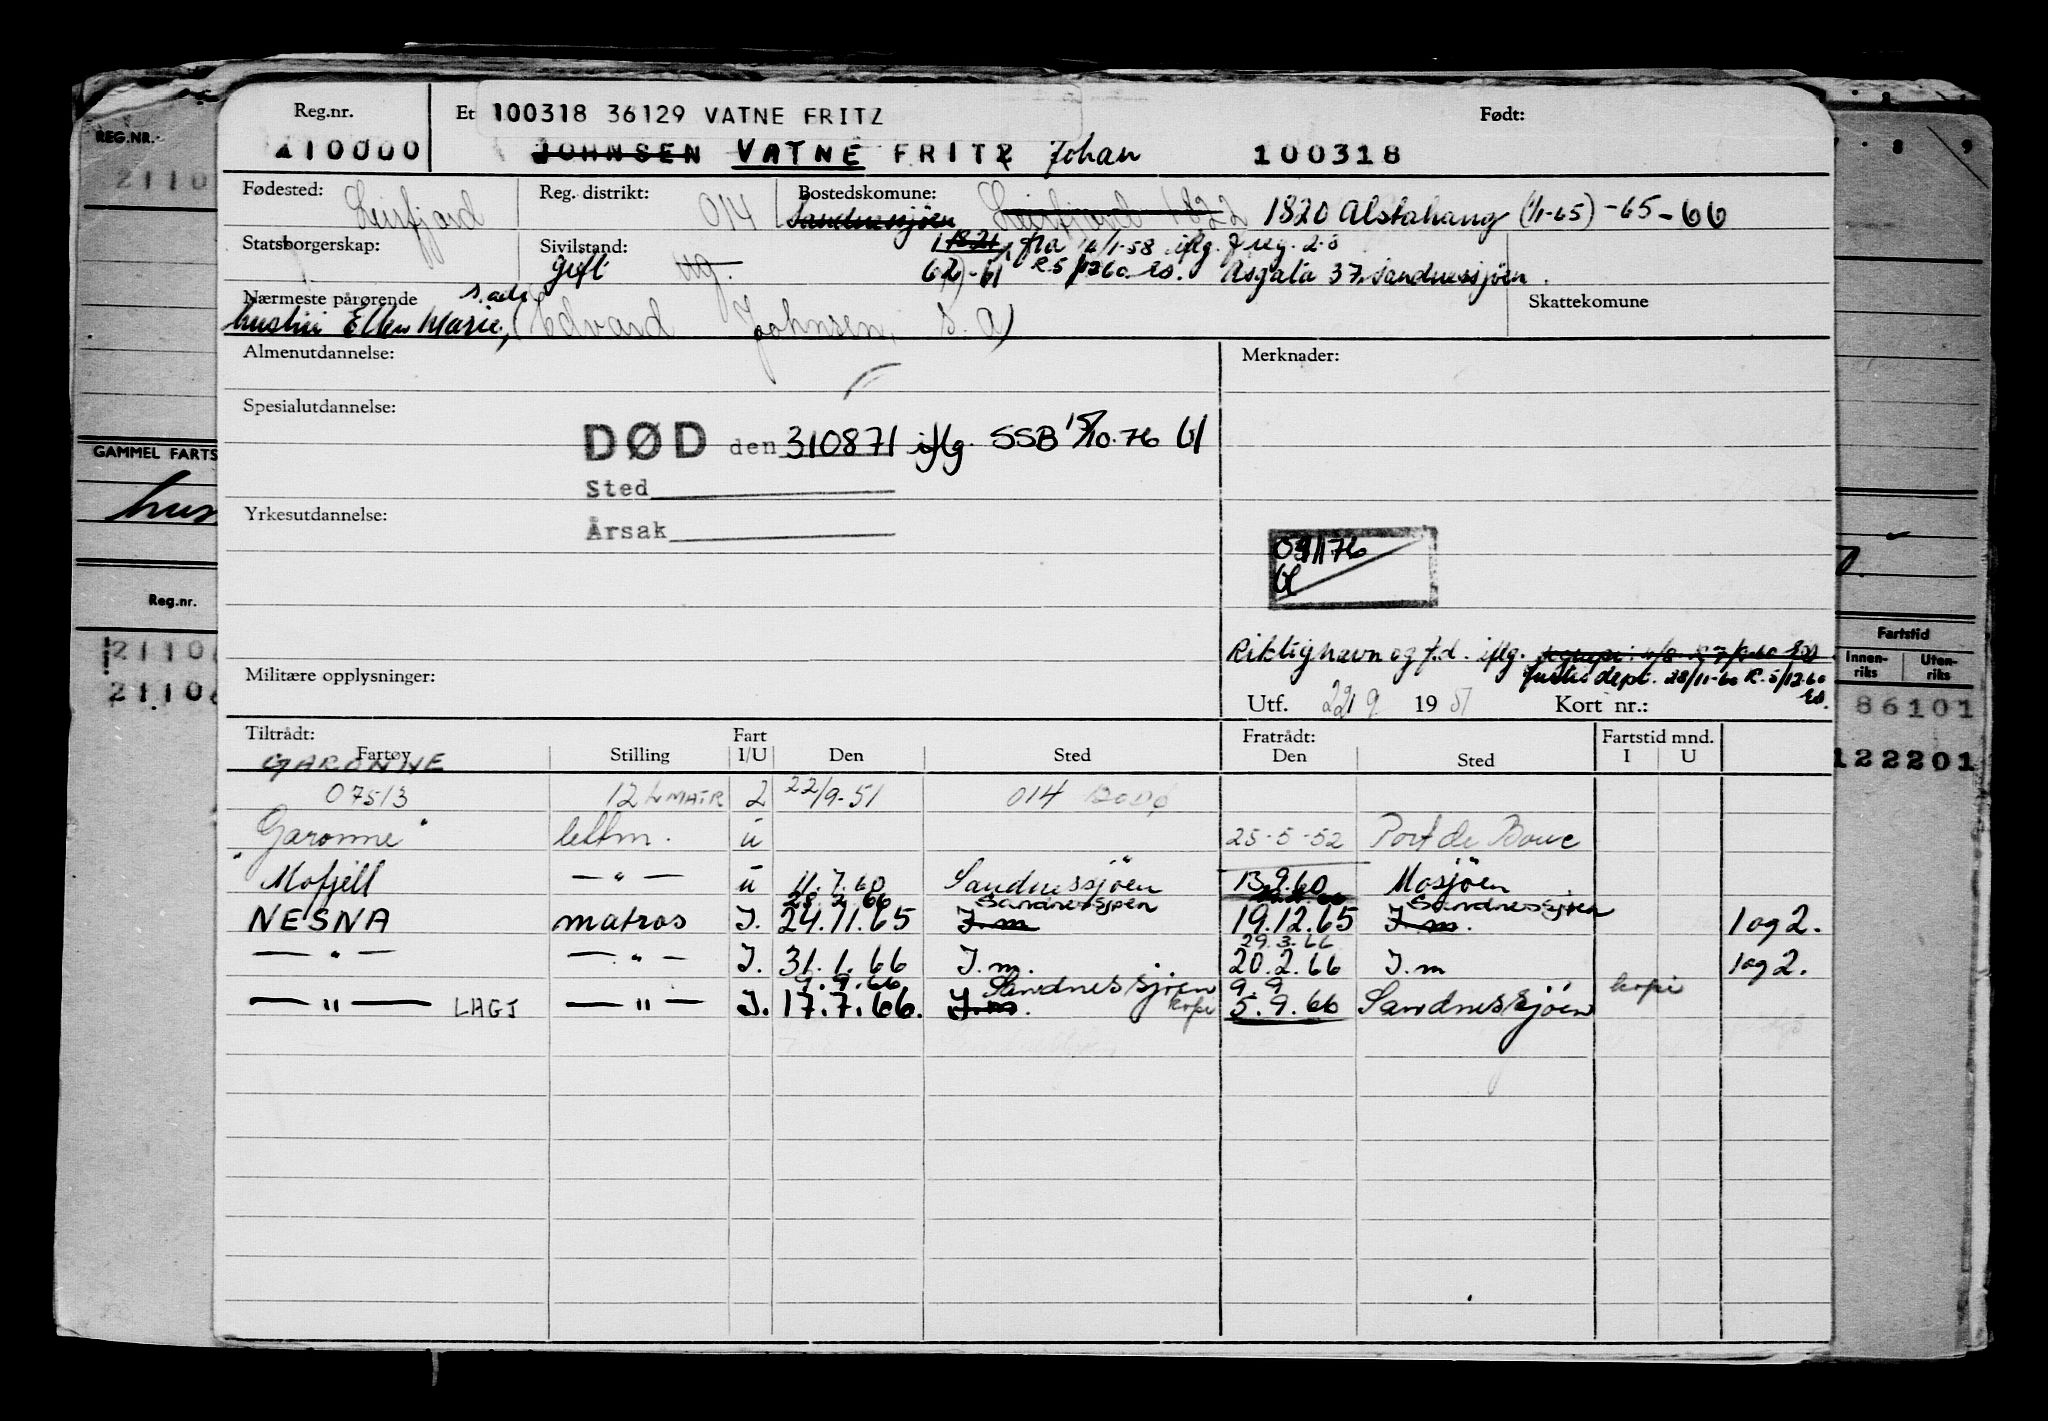 REG.NR.
2110
GAMMEL FARTS
Reg.nr.
21106
21106
Reg.nr. Et 100318 36129 VATNE FRITZ Født:
210000 JOHNSEN VATNE FRITZ Johan 100318
Fødested: Leirfjord Reg. distrikt: 014 Bostedskommune: Sandnessjøen Leirfjord 1822 1820 Alstahaug (1/1-65) -65-66
Statsborgerskap: Sivilstand: Gift ug. 1821 fra 1/1-58 iflg. f reg. 2.8
62)-61 R.5/1260 es. Asgata 37, Sandnessjøen.
Nærmeste pårørende s.adr Skattekomune
hustru Ellen Marie, (Edvard Johnsen, s.a)
Almenutdannelse: Merknader:
Spesialutdannelse:
DØD den 310871 iflg. SSB 15/10.76
Sted
Yrkesutdannelse:
Årsak
091176
Riktig navn og f.d. iflg.
Justisdept. 28/11-60 R.5/12.60
es.
Militære opplysninger:
Utf. 22/9 1951 Kort nr.:
Tiltrådt: Fart Fratrådt: Fartstid mnd.
Fartøy Stilling I/U Den Sted Den Sted I U
GARONNE
07513 12 L MATR 2 22/9-51 014 BODØ
"Garonne" lettm. u 25-5-52 Port de Bouc
Mofjell — " — u 11.7.60 Sandnessjöen 13.9.60 Mosjöen
28.2.66 Sandnessjøen Sandnessjøen
NESNA matros I. 24.11.65 I.m 19.12.65 I.m. 1 og 2.
29.3.66
— " — — " — I. 31.1.66 I.m. 20.2.66 I.m 1 og 2.
9.9.66 Sandnessjöen 9.9 kopi
— " — LAGJ — " — I. 17.7.66. I.m. kopi 5.9.66 Sandnessjöen
8 9
Fartstid
Innen-riks Uten-riks
86101
122201